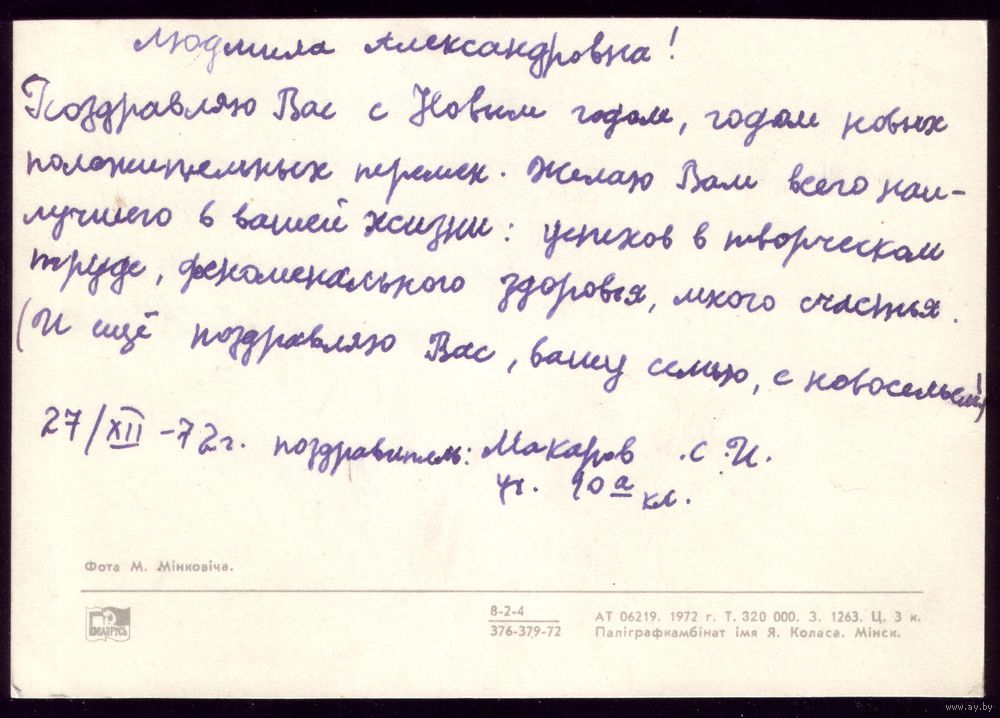 Людмила Александровна!
Поздравляю Вас с Новым годом, годом новых
положительных перемен. Желаю Вам всего наи-
лучшего в вашей жизни: успехов в творческом
труде, феноменального здоровья, много счастья.
(И ещё поздравляю Вас, вашу семью, с новосельем!)
27/XII-72г. поздравитель: Макаров С.И.
уч. 10а кл.
Фота М. Мінковіча.
БЕЛАРУСЬ
8-2-4
376-379-72
АТ 06219. 1972 г. Т. 320 000. З. 1263. Ц. 3 к.
Паліграфкамбінат імя Я. Коласа. Мінск.
www.ay.by